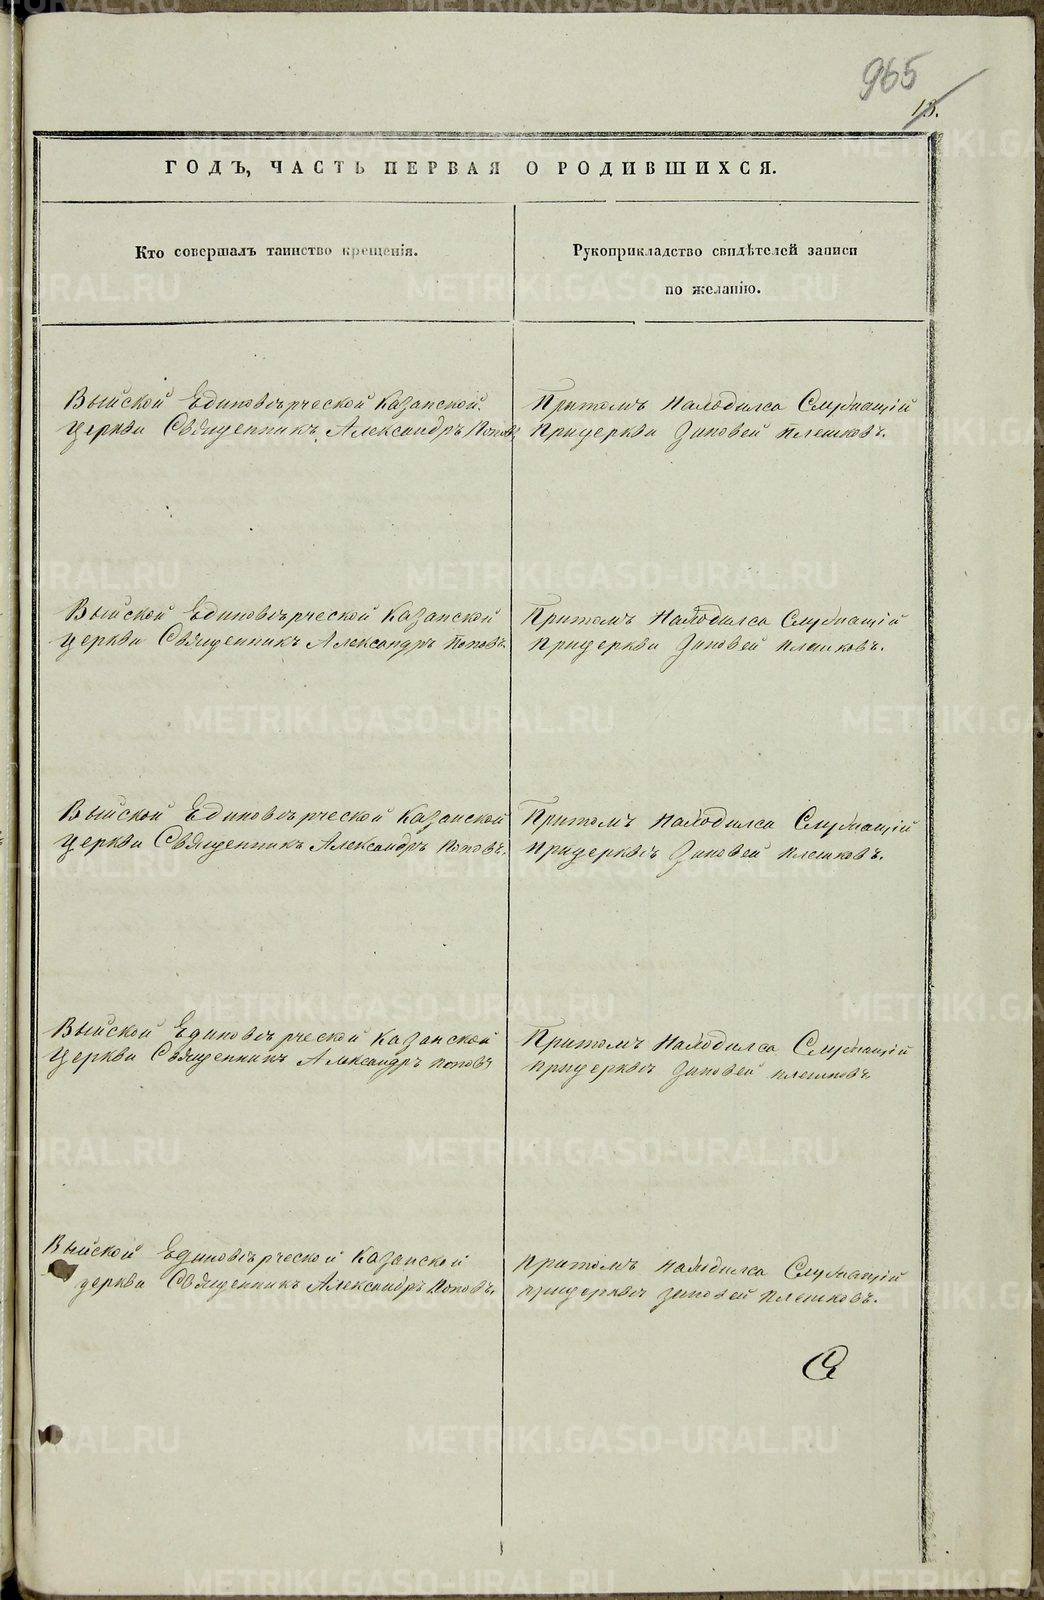 965
13.
ГОДЪ, ЧАСТЬ ПЕРВАЯ О РОДИВШИХСЯ.
Кто совершалъ таинство крещенія.
Рукоприкладство свидѣтелей записи
по желанію.
Выйской Единовѣрческой Казанской
церкви Священникъ Александръ Попов
Притомъ находился Служащій
Прицеркви Зиновей Плешковъ.
Выйской Единовѣрческой Казанской
церкви Священникъ Александръ Поповъ.
Притомъ находился Служащій
Прицеркви Зиновей Плешковъ.
Выйской Единовѣрческой Казанской
церкви Священникъ Александръ Поповъ.
Притомъ находился Служащій
Прицерквѣ Зиновей Плешковъ.
Выйской Единовѣрческой Казанской
церкви Священникъ Александръ Поповъ
Притомъ находился Служащій
прицерквѣ Зиновей Плешковъ
Выйской Единовѣрческой Казанской
церкви Священникъ Александръ Поповъ.
Притомъ находился Служащій
прицерквѣ Зиновей Плешковъ.
METRIKI.GASO-URAL.RU